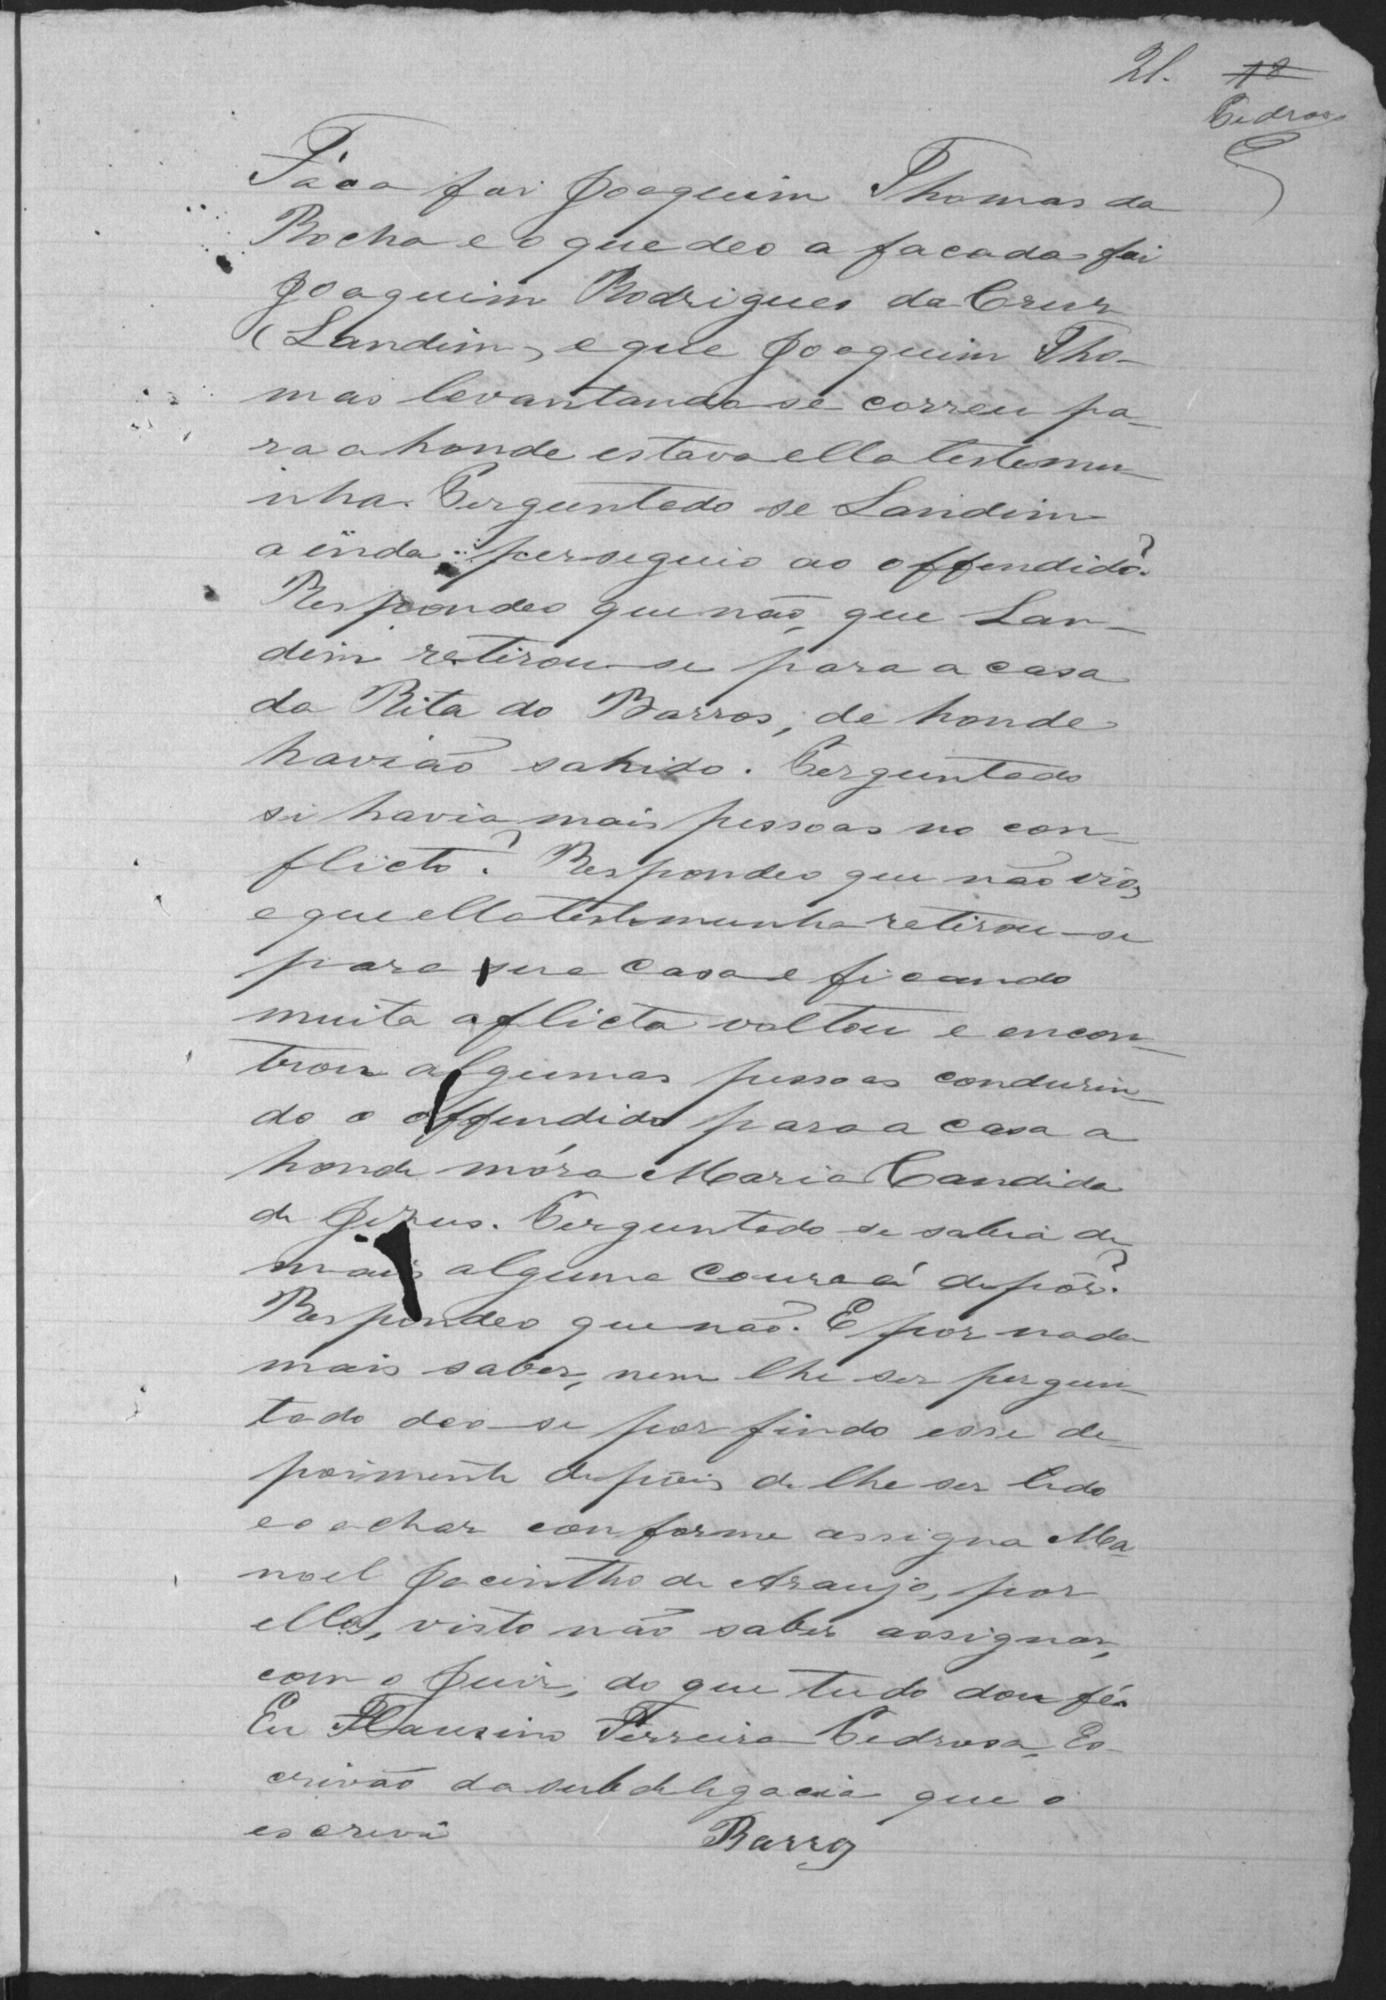 21. 18
Pedrosa
Faca foi Joaquim Thomas da
Rocha e o que deo a facada foi
Joaquim Rodrigues da Cruz
(Landim, e que Joaquim Tho-
mas levantando-se correu pa-
ra a honde estava ella testemu-
nha. Perguntado se Landim
ainda perseguio ao offendido?
Respondeo que não, que Lan-
dim retirou-se para a casa
da Rita do Barros, de honde
havião sahido. Perguntado
si havia mais pessoas no con-
flicto? Respondeo que não vio,
e que ella testemunha retirou-se
para sua casa e ficando
muita aflicta voltou e encon-
trou algumas pessoas conduzin-
do o offendido para a casa a
honde móra Maria Candida
de Jezus. Perguntado se sabia de
mais alguma couza á depôr?
Respondeo que não. E por nada
mais saber, nem lhe ser pergun-
tado deo-se por findo esse de-
poimento depois de lhe ser lido
e o achar conforme assigna Ma-
noel Jacintho de Araujo, por
ella, visto não saber assignar,
com o Juiz, do que tudo dou fé.
Eu Flausino Ferreira Pedrosa, Es-
crivão da subdelegacia que o
escrevi
Barros